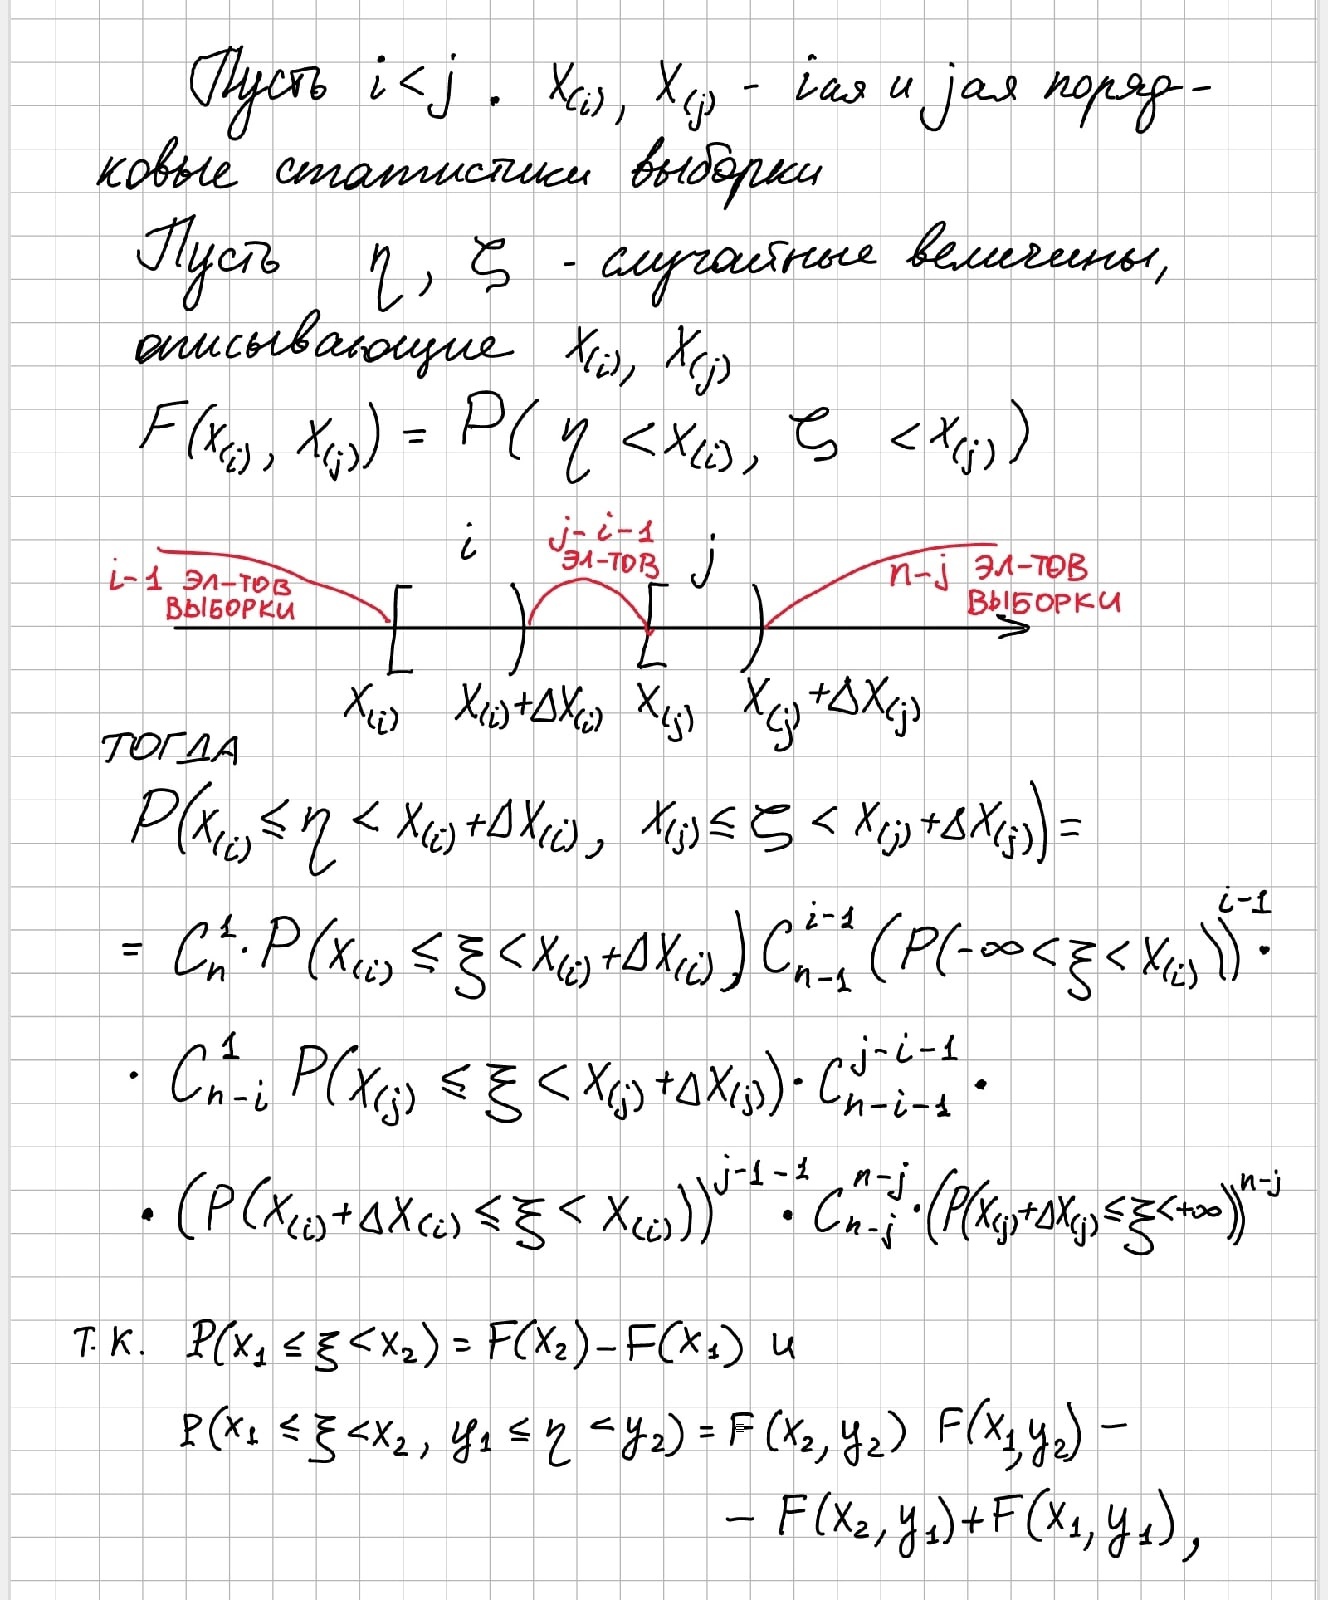 Пусть i < j . X(i), X(j) - iая и jая поряд-
ковые статистики выборки
Пусть η, ζ - случайные величины,
описывающие X(i), X(j)
F(x(i), x(j)) = P( η < x(i), ζ < x(j) )
i j-i-1 j
i-1 ЭЛ-ТОВ ЭЛ-ТОВ n-j ЭЛ-ТОВ
ВЫБОРКИ ВЫБОРКИ
X(i) X(i)+ΔX(i) X(j) X(j)+ΔX(j)
ТОГДА
P(x(i) ≤ η < x(i)+Δx(i), x(j) ≤ ζ < x(j)+Δx(j)) =
= C_n^1 · P(x(i) ≤ ξ < x(i)+Δx(i)) C_{n-1}^{i-1} (P(-∞ < ξ < x(i)))^{i-1} ·
· C_{n-i}^1 P(x(j) ≤ ξ < x(j)+Δx(j)) · C_{n-i-1}^{j-i-1} ·
· (P(x(i)+Δx(i) ≤ ξ < x(i)))^{j-1-1} · C_{n-j}^{n-j} · (P(x(j)+Δx(j) ≤ ξ < +∞))^{n-j}
т.к. P(x₁ ≤ ξ < x₂) = F(x₂) - F(x₁) и
P(x₁ ≤ ξ < x₂, y₁ ≤ η < y₂) = F(x₂, y₂) F(x₁, y₂) -
- F(x₂, y₁) + F(x₁, y₁),